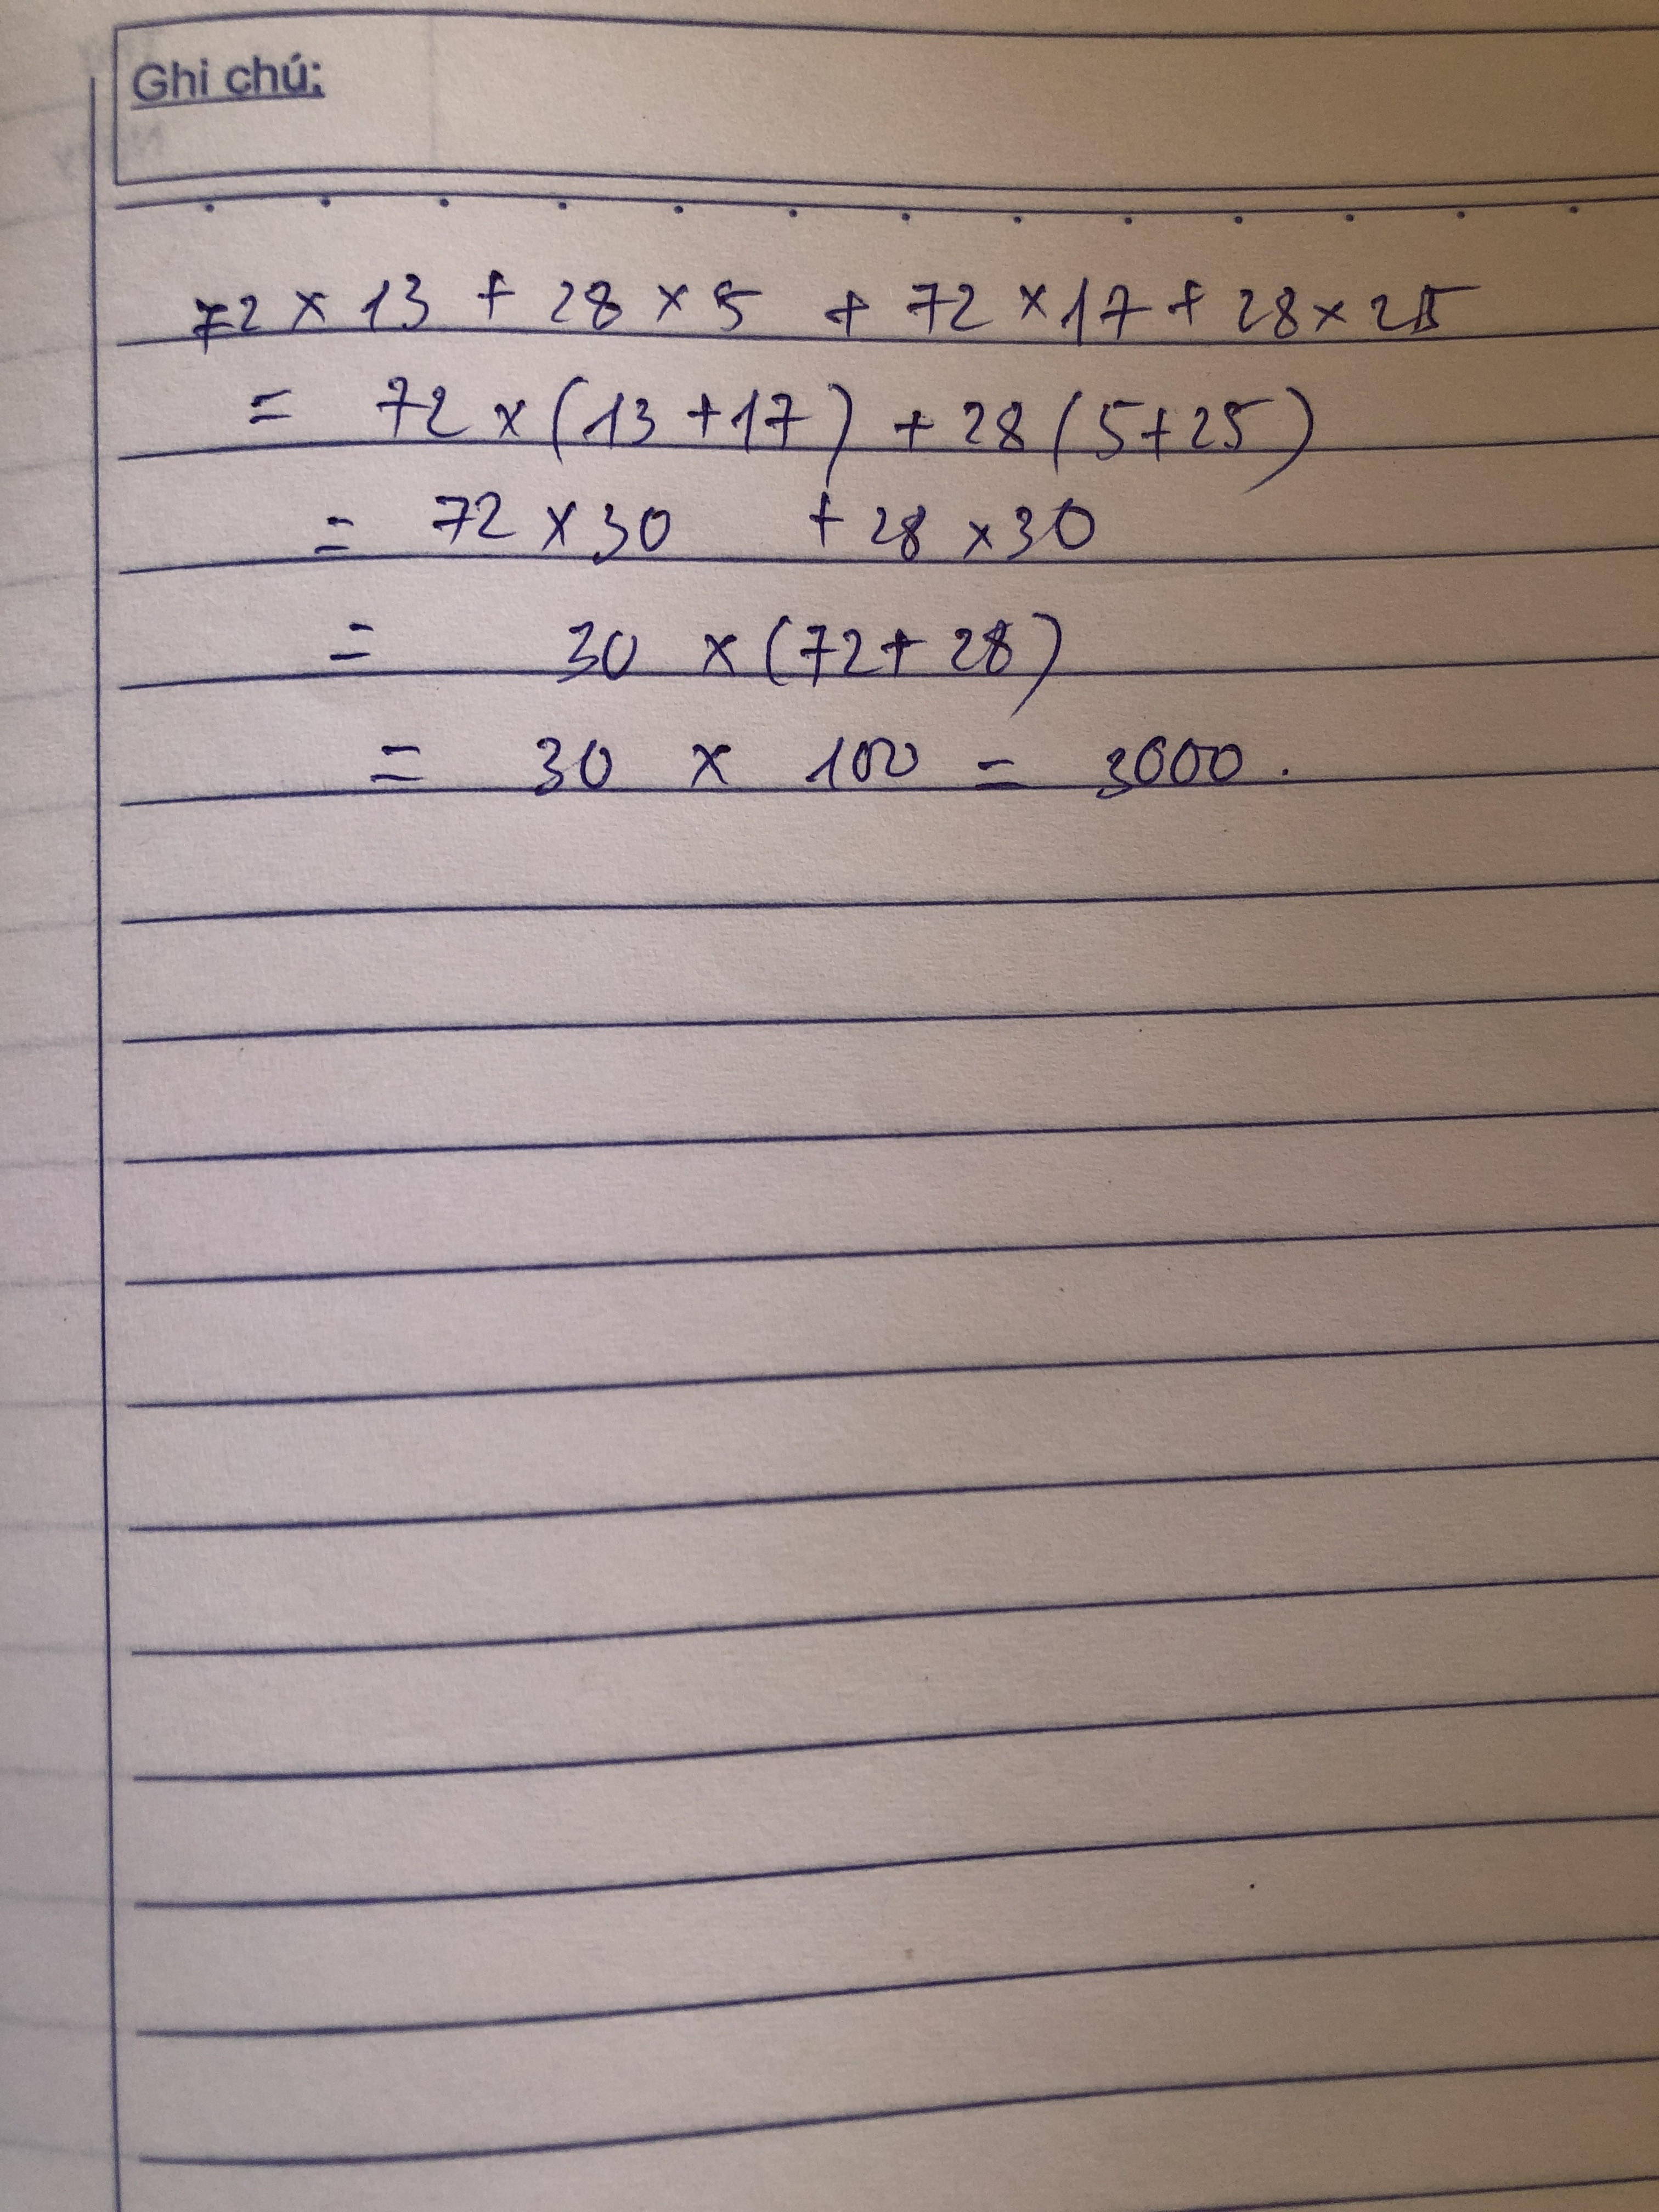 Ghi chú:
72 × 13 + 28 × 5 + 72 × 17 + 28 × 25
= 72 × (13 + 17) + 28 (5 + 25)
= 72 × 30 + 28 × 30
= 30 × (72 + 28)
= 30 × 100 = 3000.